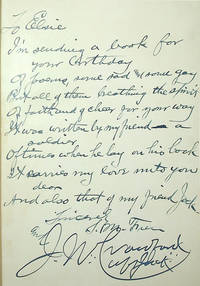 To Elsie
I'm sending a book for
your birthday
Of poems, some sad & some gay
But all of them breathing the spirit
Of faith and cheer for your way
It was written by my friend - a
soldier
Oftimes when he lay on his back
It carries my love unto you
dear
And also that of my friend Jack.
Sincerely
J. W. Crawford